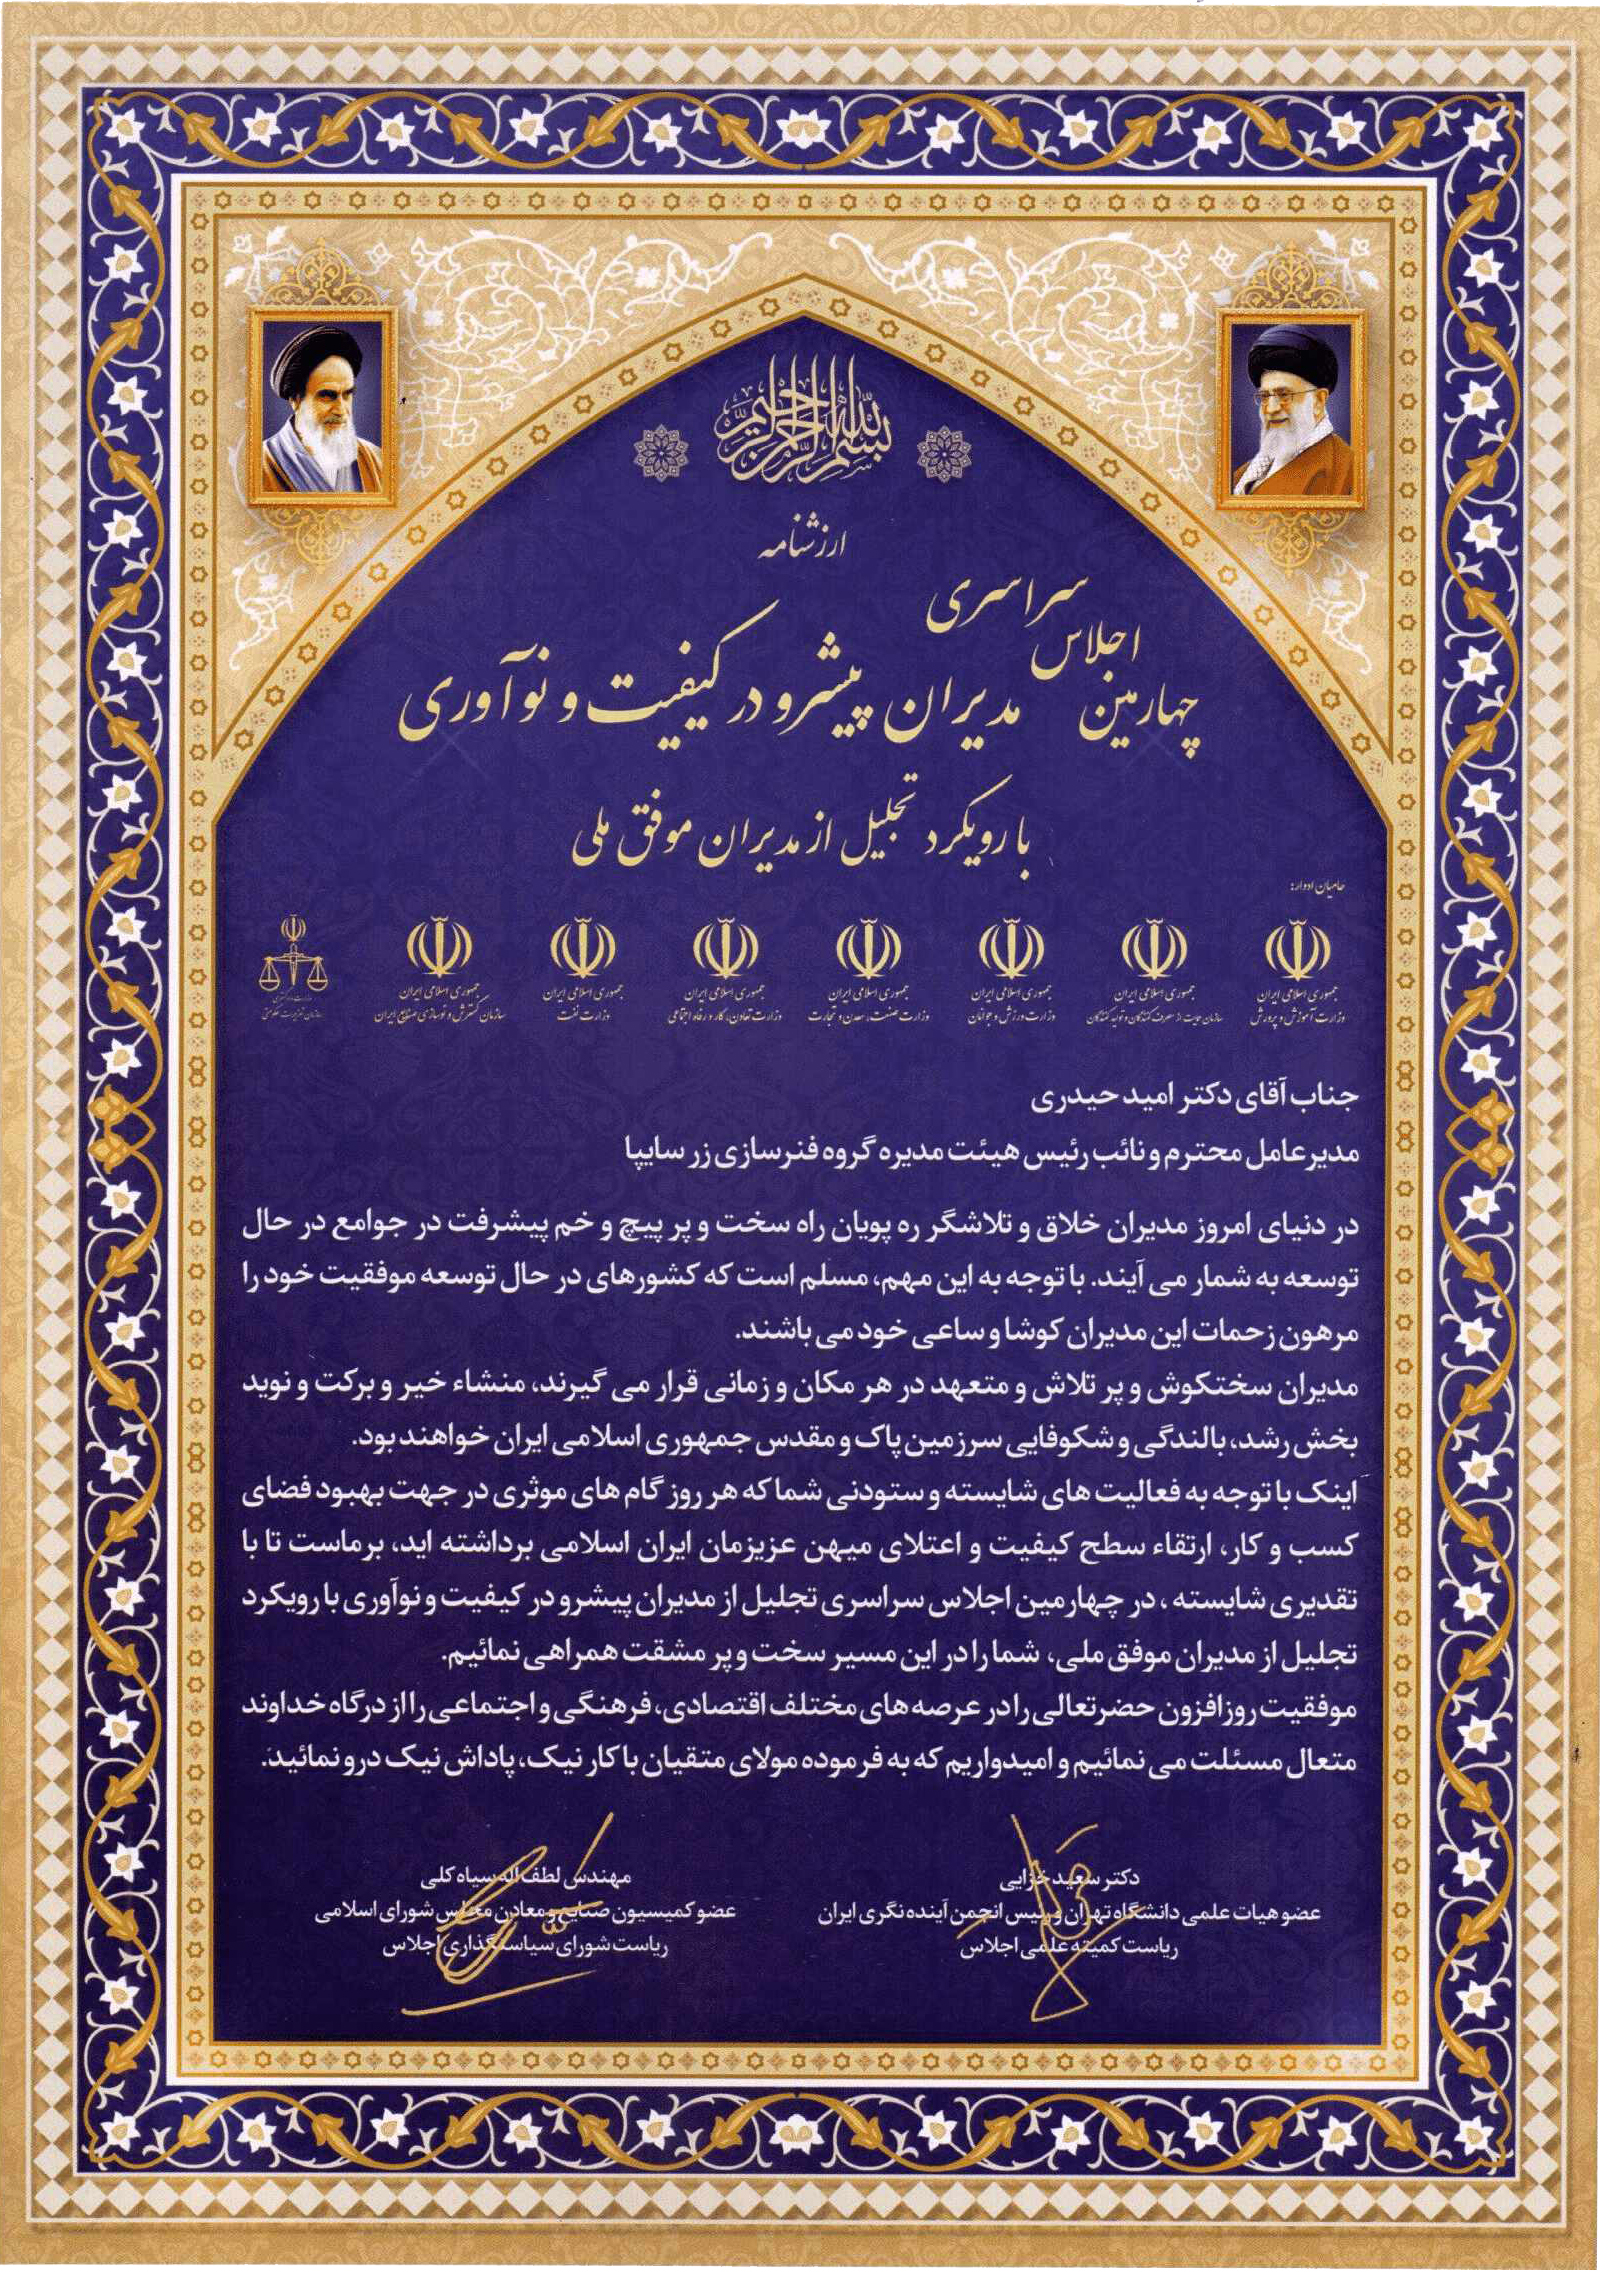 بسم الله الرحمن الرحیم
ارزشنامه
چهارمین اجلاس سراسری مدیران پیشرو در کیفیت و نوآوری
با رویکرد تجلیل از مدیران موفق ملی
حامیان ادوار:
جمهوری اسلامی ایران
وزارت آموزش و پرورش
جمهوری اسلامی ایران
سازمان حمایت از مصرف کنندگان و تولید کنندگان
جمهوری اسلامی ایران
وزارت ورزش و جوانان
جمهوری اسلامی ایران
وزارت صنعت، معدن و تجارت
جمهوری اسلامی ایران
وزارت تعاون، کار و رفاه اجتماعی
جمهوری اسلامی ایران
وزارت نفت
جمهوری اسلامی ایران
سازمان گسترش و نوسازی صنایع ایران
وزارت دادگستری
سازمان تعزیرات حکومتی
جناب آقای دکتر امید حیدری
مدیرعامل محترم و نائب رئیس هیئت مدیره گروه فنرسازی زر سایپا
در دنیای امروز مدیران خلاق و تلاشگر ره پویان راه سخت و پر پیچ و خم پیشرفت در جوامع در حال
توسعه به شمار می آیند. با توجه به این مهم، مسلم است که کشورهای در حال توسعه موفقیت خود را
مرهون زحمات این مدیران کوشا و ساعی خود می باشند.
مدیران سختکوش و پر تلاش و متعهد در هر مکان و زمانی قرار می گیرند، منشاء خیر و برکت و نوید
بخش رشد، بالندگی و شکوفایی سرزمین پاک و مقدس جمهوری اسلامی ایران خواهند بود.
اینک با توجه به فعالیت های شایسته و ستودنی شما که هر روز گام های موثری در جهت بهبود فضای
کسب و کار، ارتقاء سطح کیفیت و اعتلای میهن عزیزمان ایران اسلامی برداشته اید، برماست تا با
تقدیری شایسته ، در چهارمین اجلاس سراسری تجلیل از مدیران پیشرو در کیفیت و نوآوری با رویکرد
تجلیل از مدیران موفق ملی، شما را در این مسیر سخت و پر مشقت همراهی نمائیم.
موفقیت روزافزون حضرتعالی را در عرصه های مختلف اقتصادی، فرهنگی و اجتماعی را از درگاه خداوند
متعال مسئلت می نمائیم و امیدواریم که به فرموده مولای متقیان با کار نیک، پاداش نیک درو نمائید.
دکتر سعید خزایی
عضو هیات علمی دانشگاه تهران و رئیس انجمن آینده نگری ایران
ریاست کمیته علمی اجلاس
مهندس لطف اله سیاه کلی
عضو کمیسیون صنایع و معادن مجلس شورای اسلامی
ریاست شورای سیاستگذاری اجلاس